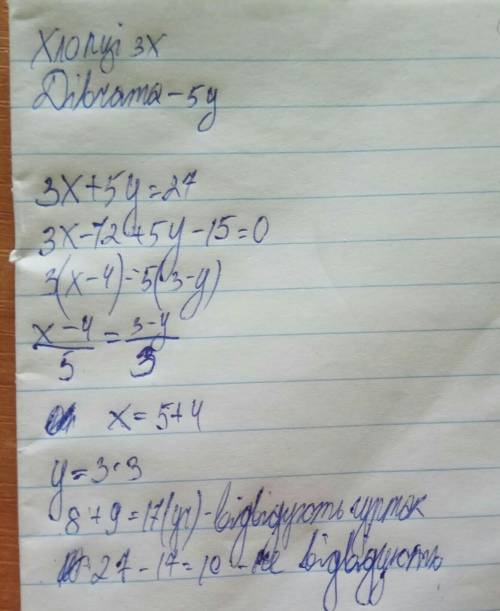 Хлопці 3x
Дівчата - 5y
3x+5y=27
3x-12+5y-15=0
3(x-4)=5(3-y)
x-4/5 = 3-y/3
x = 5+4
y = 3·3
8+9=17(уч) - відвідують гурток
27-17=10 - не відвідують